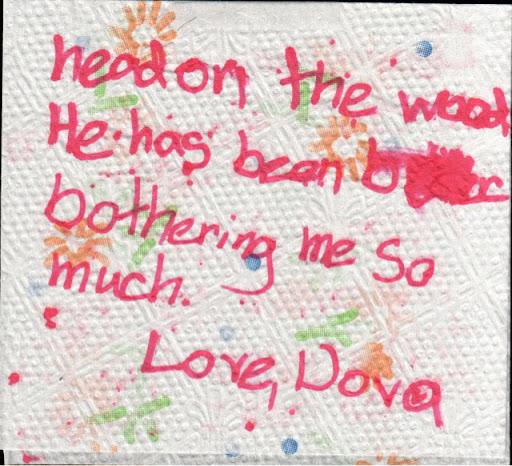 head on the wood
He has bean
bothering me so
much.
Love, Dova